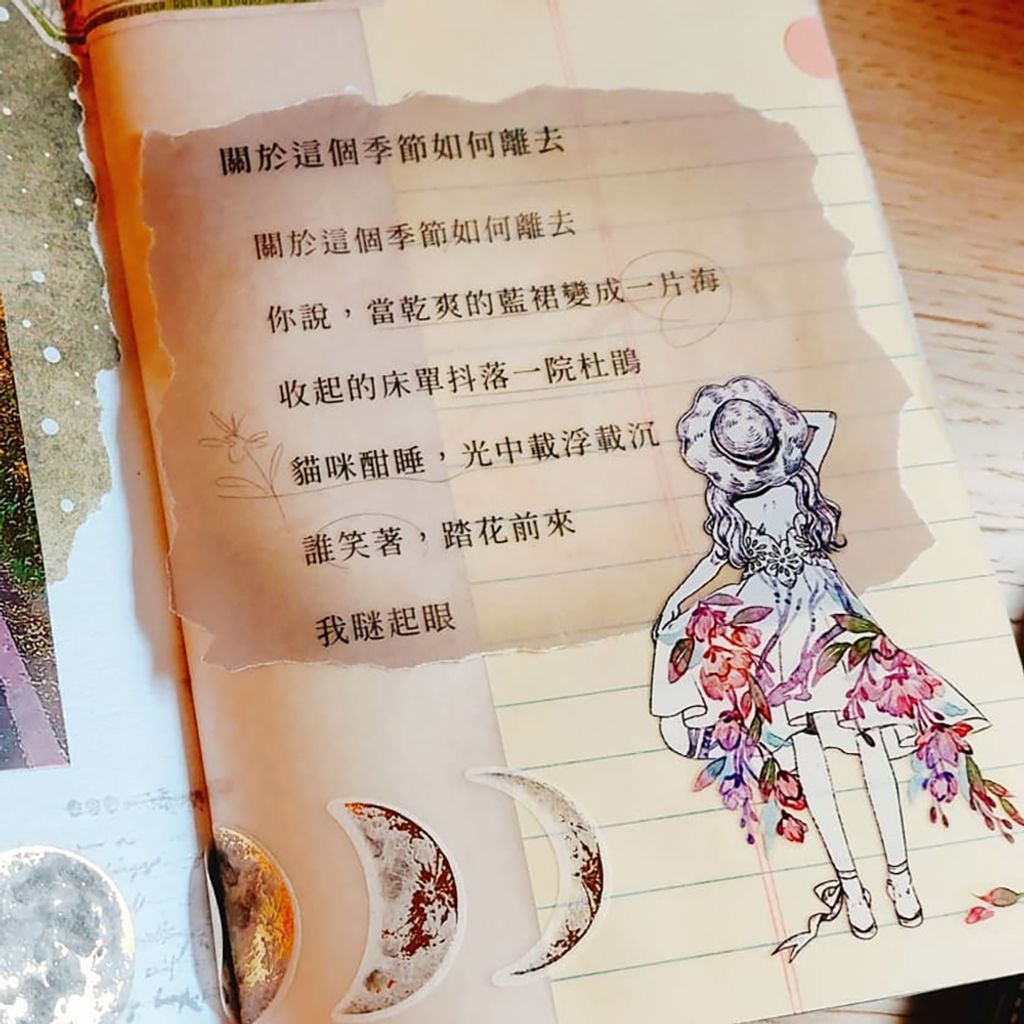 關於這個季節如何離去
關於這個季節如何離去
你說，當乾爽的藍裙變成一片海
收起的床單抖落一院杜鵑
貓咪酣睡，光中載浮載沉
誰笑著，踏花前來
我瞇起眼